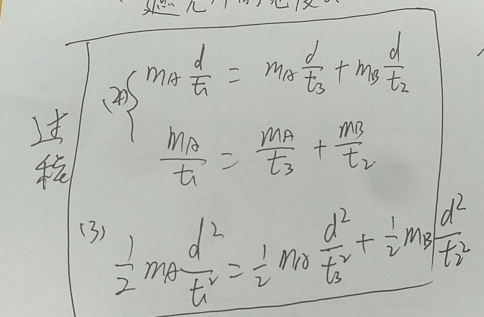 (2) { m_A d/t₁ = m_A d/t₃ + m_B d/t₂
m_A/t₁ = m_A/t₃ + m_B/t₂
过程
(3) 1/2 m_A d²/t₁² = 1/2 m_A d²/t₃² + 1/2 m_B d²/t₂²